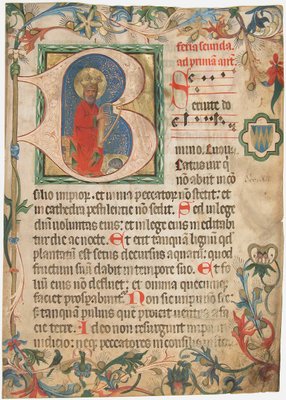 feria secunda.
ad primam ant.
Seruite do
mino.
B
eatus uir q
non abiit in co
silio impior. et in uia peccator non stetit: et
in cathedra pestilentie non sedit. Sed in lege
dni uoluntas eius: et in lege eius meditabi
tur die ac nocte. Et erit tanquam lignu qd
plantatu est secus decursus aquaru: quod
fructum suu dabit in tempore suo. Et foli
um eius non defluet: et omnia quecunque
faciet prosperabunt. Non sic impii no sic:
sed tanquam puluis que proicit uentus a fa
cie terre. Ideo non resurgunt impii in
iudicio: neqz peccatores in consilio iustor